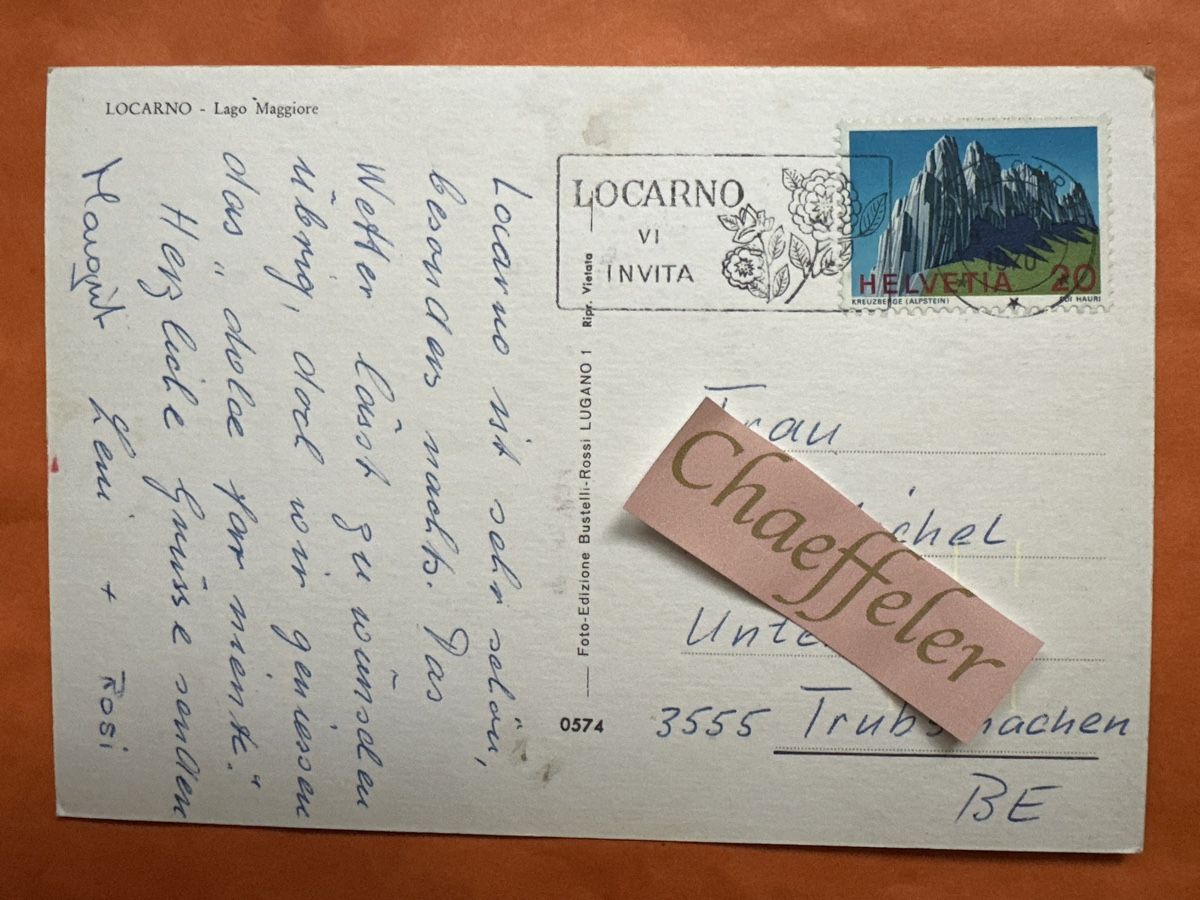 LOCARNO - Lago Maggiore
Locarno ist sehr schön,
besonders nachts. Das
Wetter lässt zu wünschen
übrig, doch wir geniessen
das „dolce far niente."
Herzliche Grüsse senden
Margrit Leni + Rosi
Foto-Edizione Bustelli-Rossi LUGANO 1 Ripr. Vietata
0574
LOCARNO
VI
INVITA
HELVETIA 20
KREUZBERGE (ALPSTEIN) EDI HAURI
1970
Frau
Chaeffeler
3555 Trubschachen
BE